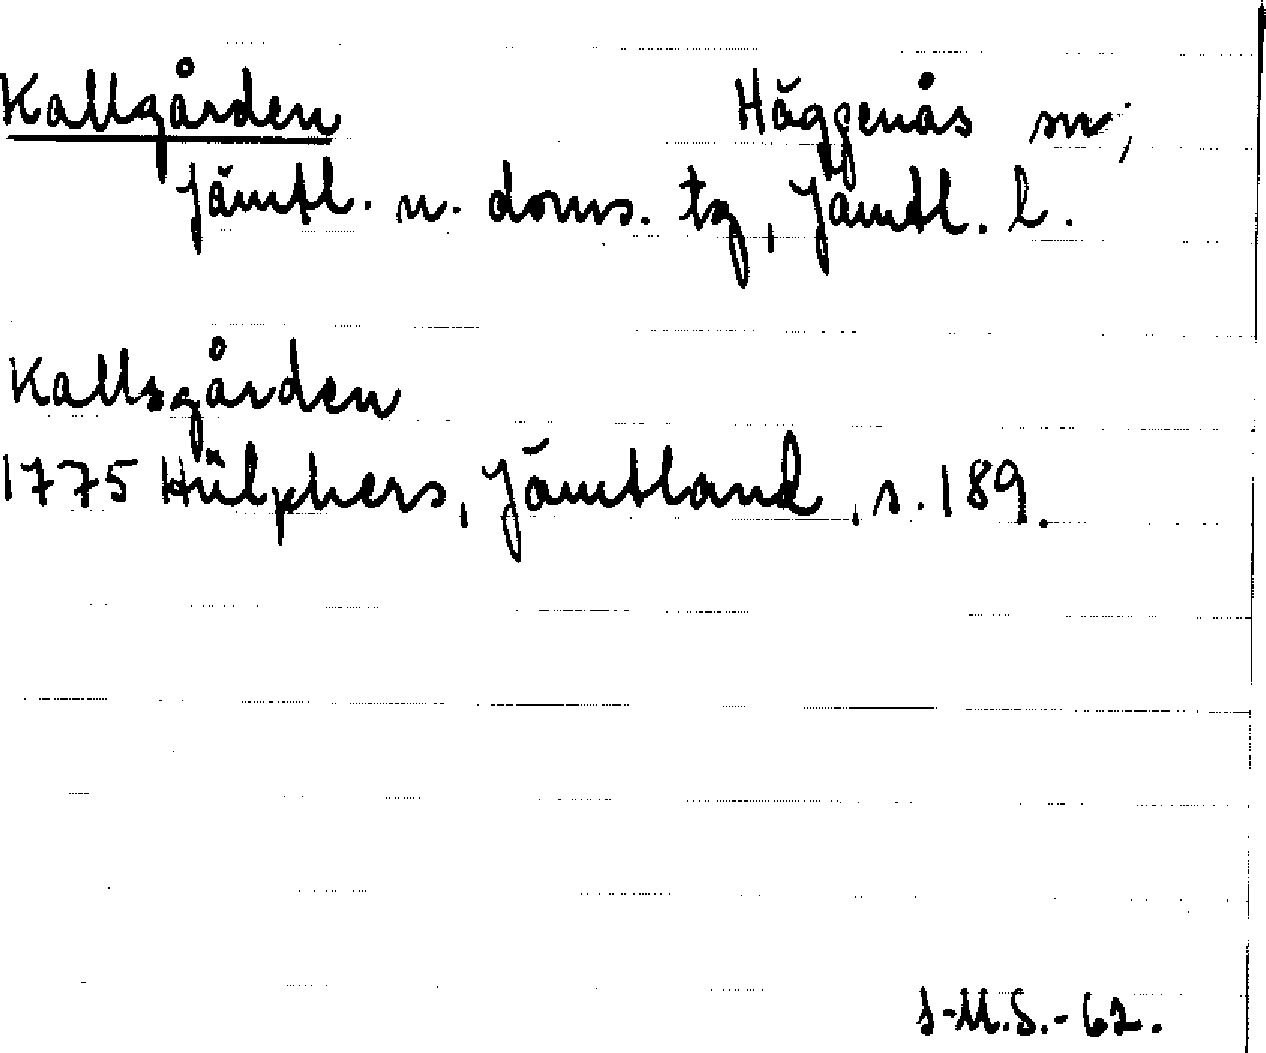 Kallgården Häggenås sn,
Jämtl. n. doms. tg, Jämtl. l.
Kallsgården
1775 Hülphers, Jämtland, s. 189.
J-M.S.-62.